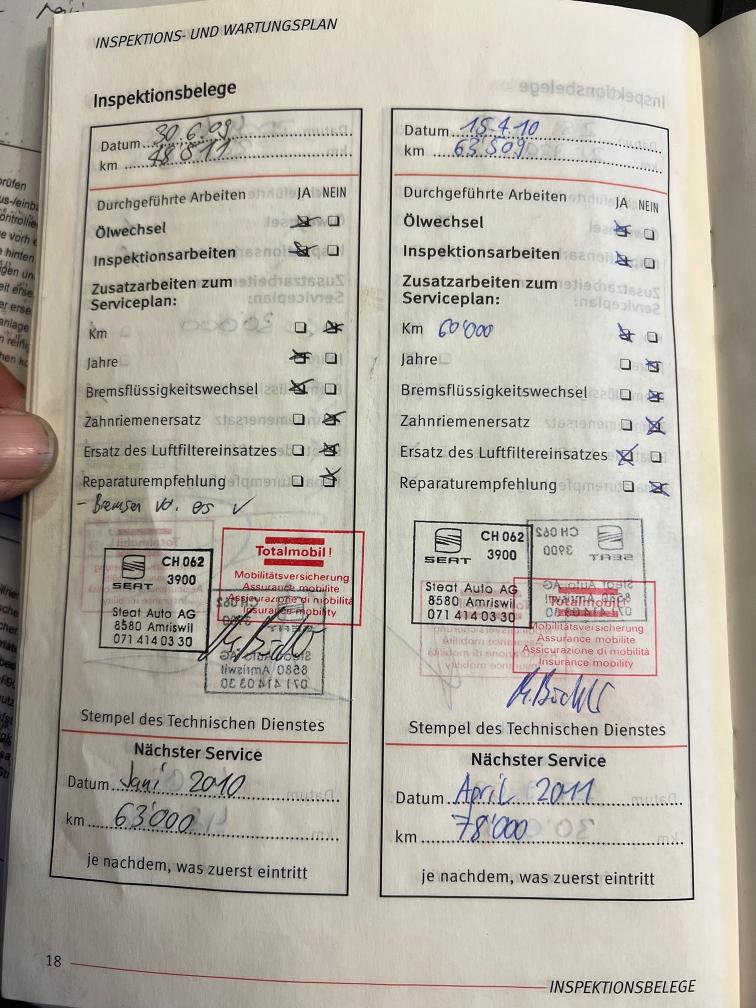 INSPEKTIONS- UND WARTUNGSPLAN
Inspektionsbelege
Datum 30.6.09
km 48811
Durchgeführte Arbeiten JA NEIN
Ölwechsel
Inspektionsarbeiten
Zusatzarbeiten zum
Serviceplan:
Km
Jahre
Bremsflüssigkeitswechsel
Zahnriemenersatz
Ersatz des Luftfiltereinsatzes
Reparaturempfehlung
- Bremsen vo. ers ✓
SEAT
CH 062
3900
Steat Auto AG
8580 Amriswil
071 414 03 30
Totalmobil!
Mobilitätsversicherung
Assurance mobilite
Assicurazione di mobilità
Insurance mobility
Stempel des Technischen Dienstes
Nächster Service
Datum Juni 2010
km 63'000
je nachdem, was zuerst eintritt
Datum 15.4.10
km 63'509
Durchgeführte Arbeiten JA NEIN
Ölwechsel
Inspektionsarbeiten
Zusatzarbeiten zum
Serviceplan:
Km 60'000
Jahre
Bremsflüssigkeitswechsel
Zahnriemenersatz
Ersatz des Luftfiltereinsatzes
Reparaturempfehlung
SEAT
CH 062
3900
Steat Auto AG
8580 Amriswil
071 414 03 30
Totalmobil!
Mobilitätsversicherung
Assurance mobilite
Assicurazione di mobilità
Insurance mobility
Stempel des Technischen Dienstes
Nächster Service
Datum April 2011
km 78'000
je nachdem, was zuerst eintritt
18
INSPEKTIONSBELEGE